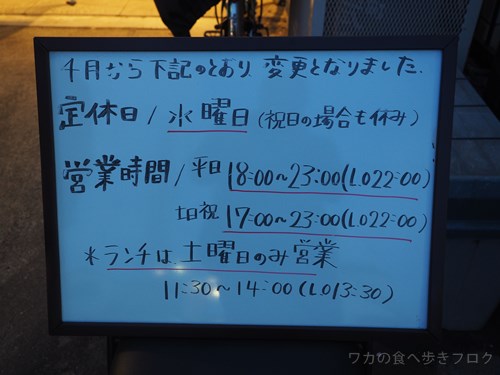 4月から下記のとおり変更となりました.
定休日/水曜日(祝日の場合も休み)
営業時間/平日18:00~23:00(L.O22:00)
土日祝17:00~23:00(L.O22:00)
*ランチは土曜日のみ営業
11:30~14:00(L.O13:30)
ワカの食べ歩きブログ